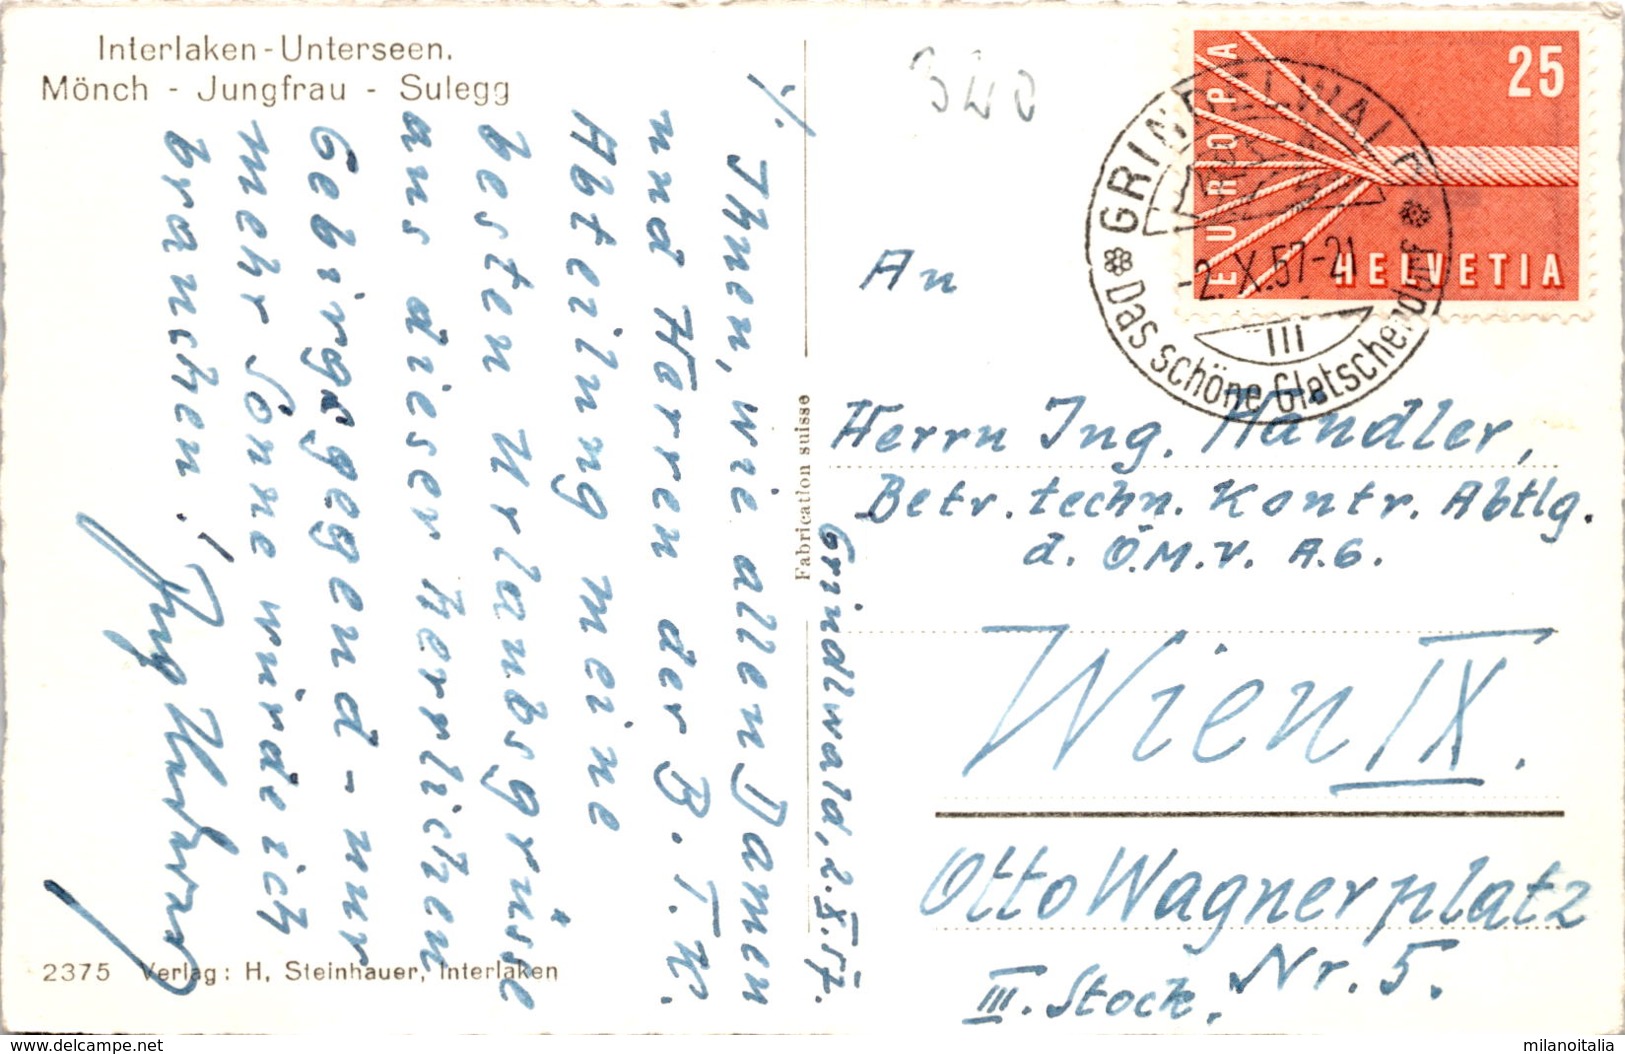 Interlaken - Unterseen.
Mönch - Jungfrau - Sulegg
340
EUROPA
25
HELVETIA
GRINDELWALD
-2.X.57-21
III
Das schöne Gletscherdorf
Grindlwald, 2.X.57.
Ihnen, wie allen Damen
und Herren der B.T.K.
Abteilung meine
besten Urlaubsgrüsse
aus dieser herrlichen
Gebirgsgegend - nur
mehr Sonne würde ich
brauchen!
An
Herrn Ing. Handler,
Betr. techn. Kontr. Abtlg.
d. Ö.M.V. A.G.
Wien IX.
Otto Wagnerplatz
Nr. 5.
III. Stock.
Fabrication suisse
2375 Verlag: H. Steinhauer, Interlaken
www.delcampe.net
milanoitalia